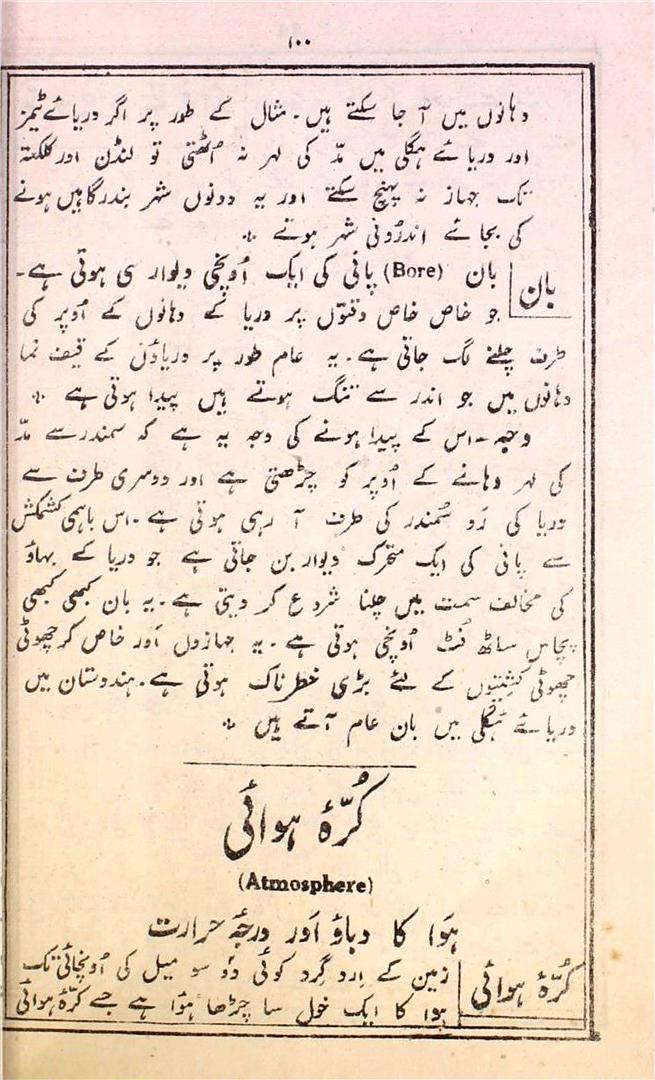 ۱۰۰
دہانوں میں آ جا سکتے ہیں۔ مثال کے طور پر اگر دریائے ٹیمز
اور دریائے ہگلی میں مدّ کی لہر نہ اُٹھتی تو لنڈن اور کلکتہ
تک جہاز نہ پہنچ سکتے اور یہ دونوں شہر بندرگاہیں ہونے
کی بجائے اندرُونی شہر ہوتے ۔
بان
بان (Bore) پانی کی ایک اُونچی دیوار سی ہوتی ہے۔
جو خاص خاص وقتوں پر دریا کے دہانوں کے اُوپر کی
طرف چلنے لگ جاتی ہے۔ یہ عام طور پر دریاؤں کے قیف نما
دہانوں میں جو اندر سے تنگ ہوتے ہیں پیدا ہوتی ہے ۔
وجہ ۔ اس کے پیدا ہونے کی وجہ یہ ہے کہ سمندر سے مدّ
کی لہر دہانے کے اُوپر کو چڑھتی ہے اور دوسری طرف سے
دریا کی رَو سُمندر کی طرف آ رہی ہوتی ہے۔ اس باہمی کشمکش
سے پانی کی ایک متحرک دیوار بن جاتی ہے جو دریا کے بہاؤ
کی مخالف سمت میں چلنا شروع کر دیتی ہے۔ یہ بان کبھی کبھی
پچاس ساٹھ فُٹ اُونچی ہوتی ہے ۔ یہ جہازوں اَور خاص کر چھوٹی
چھوٹی کشتیوں کے لئے بڑی خطرناک ہوتی ہے۔ ہندوستان میں
دریائے ہُگلی میں بان عام آتے ہیں ۔
کُرّۂ ہوائی
(Atmosphere)
ہَوا کا دباؤ اَور درجۂ حرارت
کُرّۂ ہوائی
زمین کے اِرد گِرد کوئی دَو سو میل کی اُونچائی تک
ہوا کا ایک خول سا چڑھا ہُوا ہے جسے کُرّۂ ہوائی